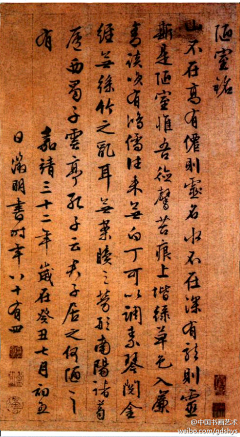 陋室銘
山不在高有僊則名水不在深有龍則靈
斯是陋室惟吾德馨苔痕上堦綠草色入簾
青談笑有鴻儒往來無白丁可以調素琴閱金
經無絲竹之亂耳無案牘之勞形南陽諸葛
廬西蜀子雲亭孔子云君子居之何陋之
有　嘉靖三十二年歲在癸丑七月初五
日徵明書時年八十有四
@中国书画艺术
weibo.com/gdsbys